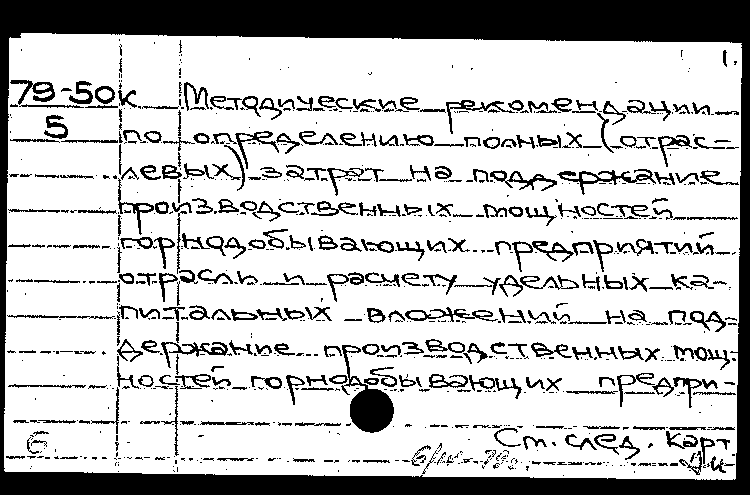 1.
79-50к Методические рекомендации
5 по определению полных (отрас-
левых) затрат на поддержание
производственных мощностей
горнодобывающих предприятий
отрасли и расчету удельных ка-
питальных вложений на под-
держание производственных мощ-
ностей горнодобывающих предпри-
См. след. карт
6.